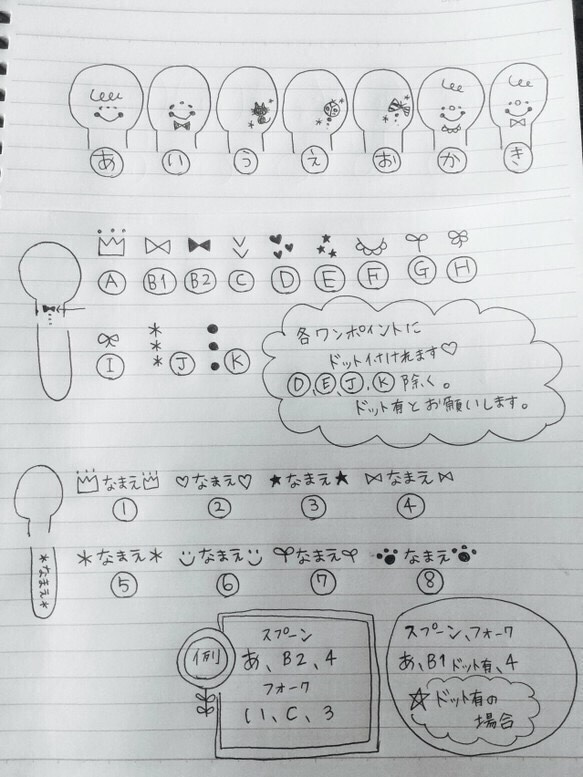 あ い う え お か き
A B1 B2 C D E F G H
I J K
各ワンポイントに
ドット付けれます♡
D、E、J、K 除く。
ドット有とお願いします。
なまえ ♡なまえ♡ ★なまえ★ なまえ
① ② ③ ④
*なまえ*
*なまえ* なまえ なまえ なまえ
⑤ ⑥ ⑦ ⑧
例
スプーン
あ、B2、4
フォーク
い、C、3
スプーン、フォーク
あ、B1 ドット有、4
☆ドット有の
場合